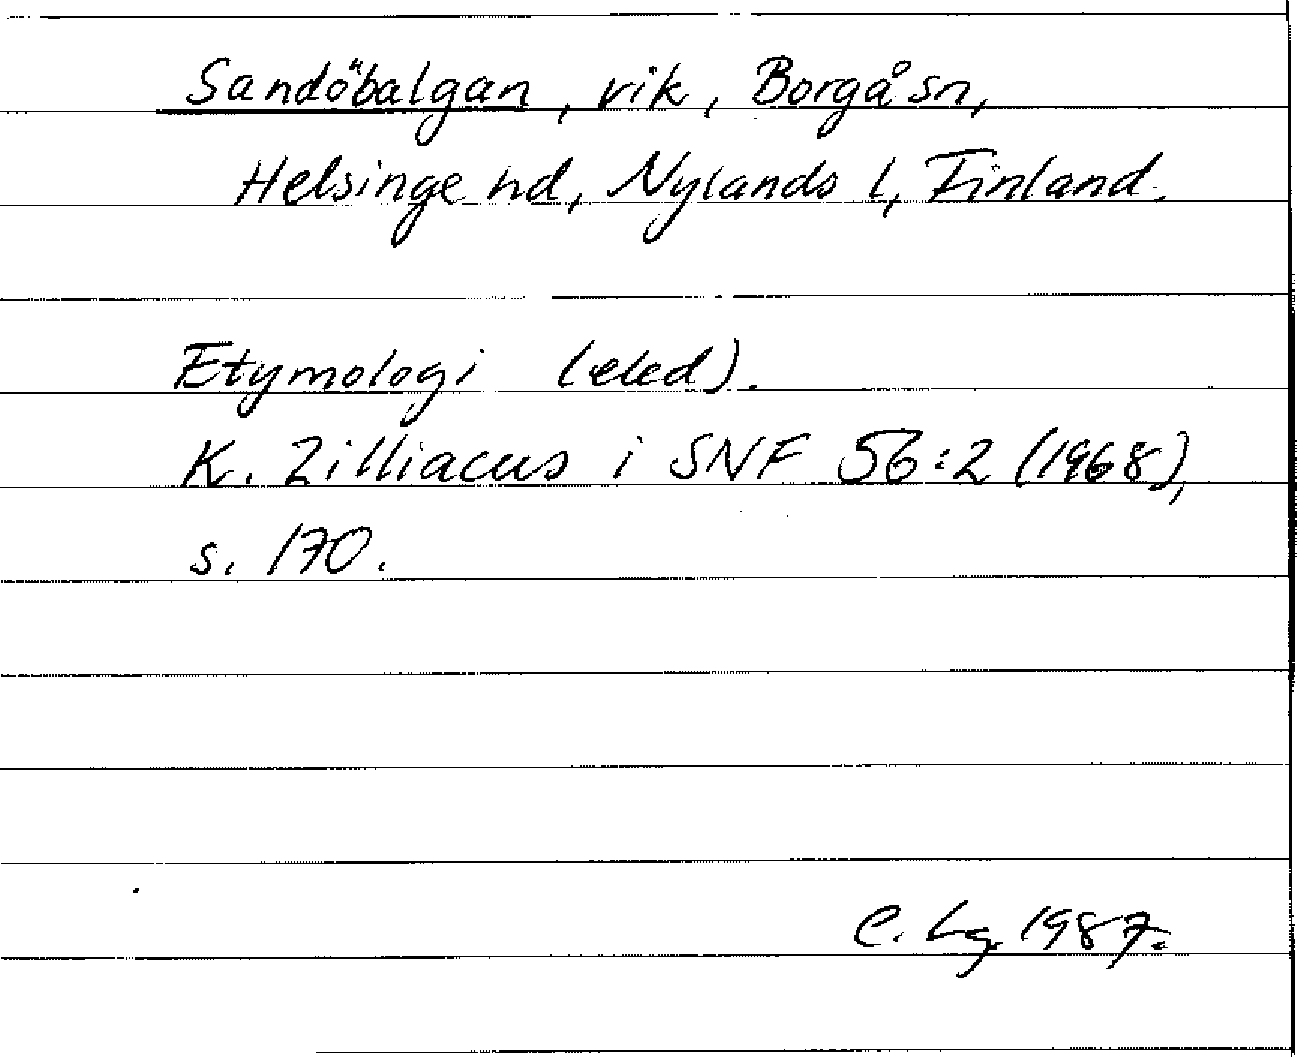 Sandöbalgan, vik, Borgå sn,
Helsinge hd, Nylands l, Finland.
Etymologi (eled).
K. Zilliacus i SNF 56:2 (1968),
s. 170.
C. Lg. 1987.